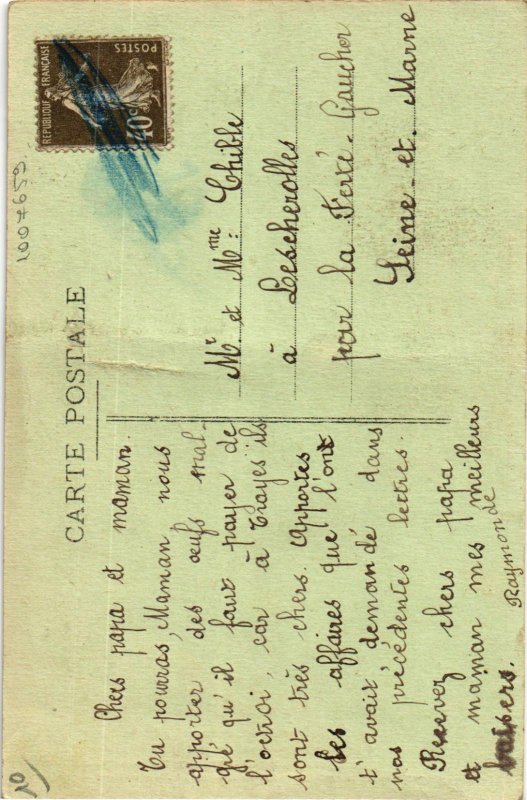 CARTE POSTALE
Chers papa et maman.
Tu pourras, Maman nous
apporter des œufs mal-
gré qu'il faut payer de
l'octroi, car à Troyes ils
sont très chers. Apportes
les affaires que l'ont
t'avait demandé dans
nos précédentes lettres.
Recevez chers papa
et maman mes meilleurs
baisers.
Raymonde
REPUBLIQUE FRANÇAISE
POSTES
40c
Mr et Mme: Thible
à Lescherolles
par la Ferté-Gaucher
Seine-et-Marne
1007659
10/